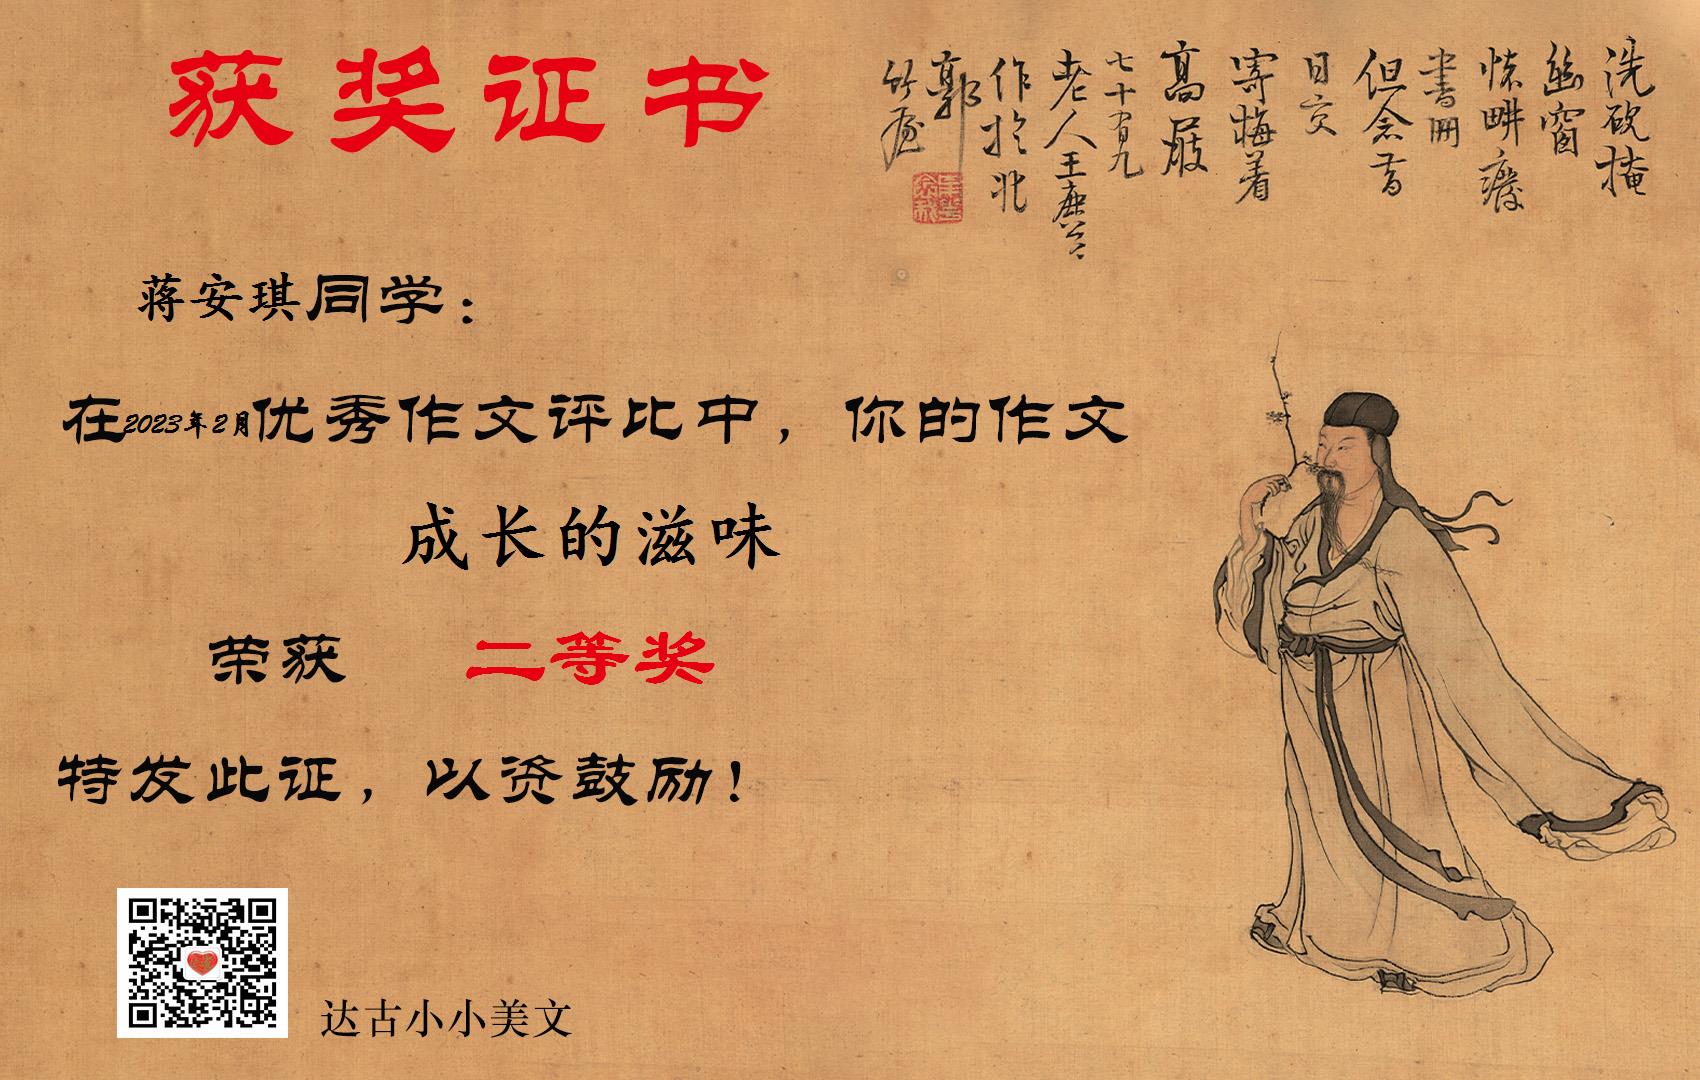 获奖证书
蒋安琪同学：
在2023年2月优秀作文评比中，你的作文
成长的滋味
荣获 二等奖
特发此证，以资鼓励！
达古小小美文
洗砚掩
幽窗
書冊
但念昔
日交
寄梅着
高
七十有九
老人王
作於北
郭
竹